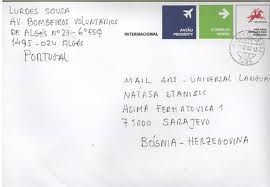 LURDES SOUSA
AV. BOMBEIROS VOLUNTÁRIOS
DE ALGÉS Nº 27-6º ESQ
1495-024 ALGÉS
PORTUGAL
INTERNACIONAL
AVIÃO
PRIORITY
CORREIO
VERDE
MAIL ART - UNIVERSAL LANGUAG
NATASA STANISIC
ASIMA FERHATOVICA 1
71000 SARAJEVO
BÓSNIA-HERZEGOVINA